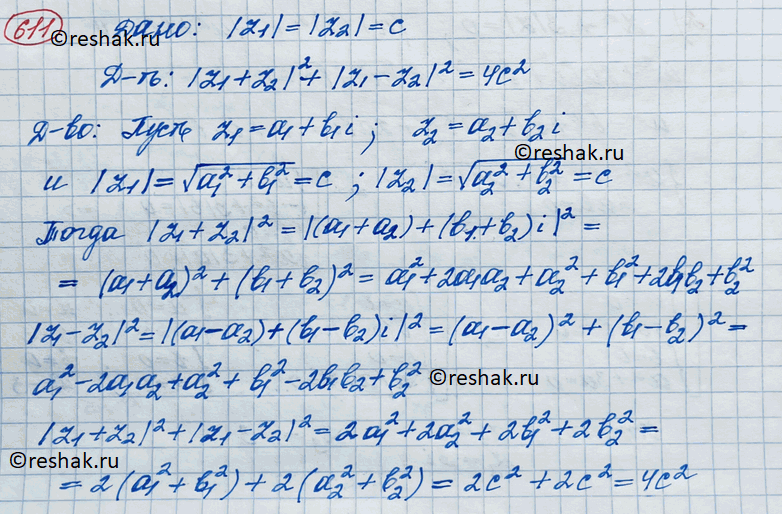 611 Дано: |z₁|=|z₂|=c
©reshak.ru
Д-ть: |z₁+z₂|²+|z₁-z₂|²=4c²
Д-во: Пусть z₁=a₁+b₁i; z₂=a₂+b₂i
©reshak.ru
и |z₁|=√(a₁²+b₁²)=c; |z₂|=√(a₂²+b₂²)=c
Тогда |z₁+z₂|²=|(a₁+a₂)+(b₁+b₂)i|²=
= (a₁+a₂)²+(b₁+b₂)²=a₁²+2a₁a₂+a₂²+b₁²+2b₁b₂+b₂²
|z₁-z₂|²=|(a₁-a₂)+(b₁-b₂)i|²=(a₁-a₂)²+(b₁-b₂)²=
a₁²-2a₁a₂+a₂²+b₁²-2b₁b₂+b₂²
©reshak.ru
|z₁+z₂|²+|z₁-z₂|²=2a₁²+2a₂²+2b₁²+2b₂²=
©reshak.ru
=2(a₁²+b₁²)+2(a₂²+b₂²)=2c²+2c²=4c²